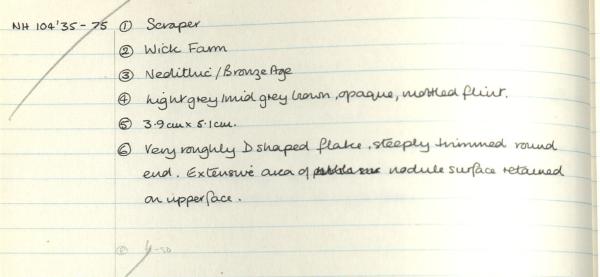 NH 104'35-75 ① Scraper
② Wick Farm
③ Neolithic/Bronze Age
④ Light grey/mid grey brown, opaque, mottled flint.
⑤ 3.9cm x 5.1cm.
⑥ Very roughly D shaped flake, steeply trimmed round
end. Extensive area of nodule surface retained
on upperface.